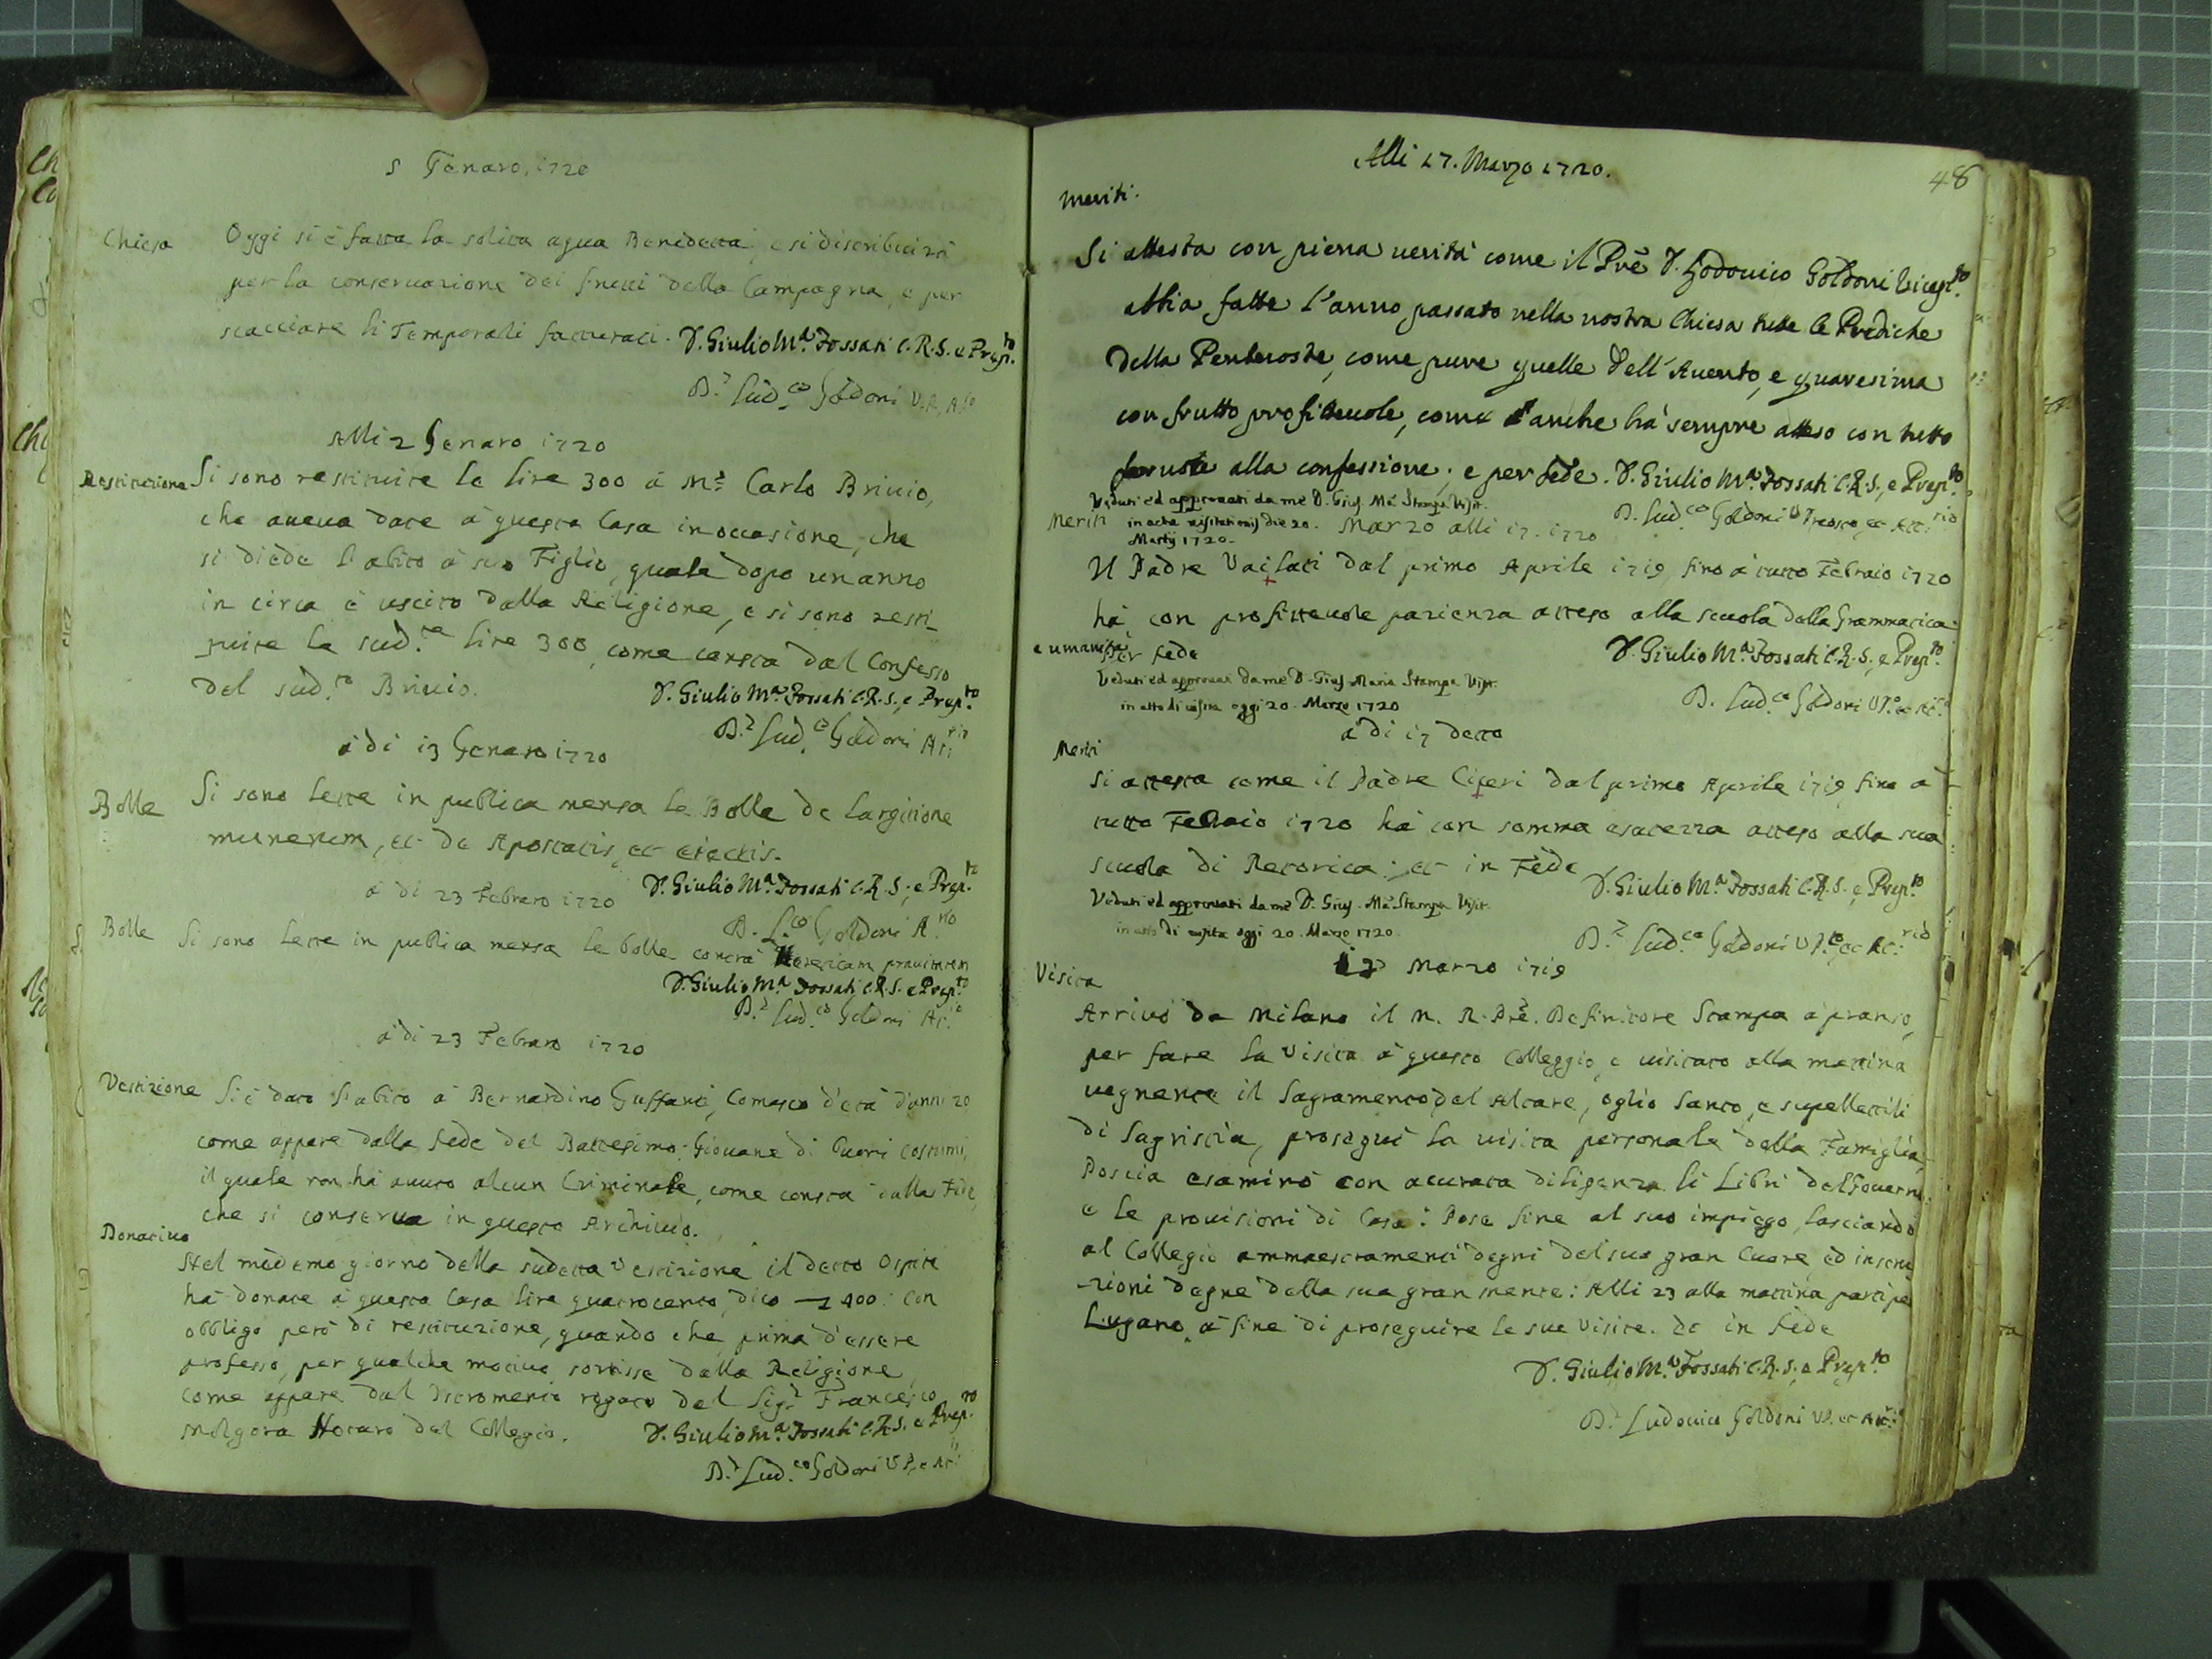 5 Genaro, 1720
Chiesa
Oggi si è fatta la solita aqua Benedetta, e si distribuirà
per la conservazione dei frutti della Campagna, e per
scacciare li Temporali fatturati. D. Giulio M.a Fossati C.R.S. e Prep.to
D. Lud.co Goldoni V.P., At.o
Alli 2 Genaro 1720
Restituzione
Si sono restituite le lire 300 à Mr. Carlo Brivio,
che aveva date à questa Casa in occasione, che
si diede l'abito à suo Figlio, quale dopo un anno
in circa è uscito dalla Religione, e si sono resti-
tuite le sud.te lire 300, come consta dal Confesso
del sud.to Brivio.
D. Giulio M.a Fossati C.R.S., e Prep.to
D. Lud.co Goldoni At.rio
à di 13 Genaro 1720
Bolle
Si sono lette in publica mensa le Bolle de largitione
munerum, et de Apostatis, et eiectis.
D. Giulio M.a Fossati C.R.S., e Prep.to
à di 23 Febraro 1720
D. L.co Goldoni A.rio
Bolle
Si sono lette in publica mensa le bolle contra Hereticam pravitatem
D. Giulio M.a Fossati C.R.S. e Prep.to
D. Lud.co Goldoni At.rio
à di 23 Febraro 1720
Vestizione
Si è dato l'abito à Bernardino Guffanti, Comasco d'età d'anni 20
come appare dalla fede del Battesimo: Giovane di buoni costumi,
il quale non hà avuto alcun Criminale, come consta dalla Fede,
che si conserva in questo Archivio.
Donativo
Nel medemo giorno della sudetta Vestizione il detto Ospite
hà donate à questa Casa lire quatrocento, dico 400: con
obbligo però di restituzione, quando che prima d'essere
professo, per qualche motivo sortisse dalla Religione,
come appare dal Istromento rogato del Sig.r Francesco
Molgora Notaro del Collegio.
D. Giulio M.a Fossati C.R.S. e Prep.to
D. Lud.co Goldoni V.P., e At.rio
48
Alli 17. Marzo 1720.
Meriti.
Si attesta con piena verità come il Prê D. Lodovico Goldoni Vicep.to
abbia fatte l'anno passato nella nostra Chiesa tutte le Prediche
della Pentecoste, come pure quelle dell'Avento, e quaresima
con frutto profittevole, come anche hà sempre atteso con tutto
fervore alla confessione; e per fede. D. Giulio M.a Fossati C.R.S., e Prep.to
Veduti ed approvati da me D. Gius. Ma. Stampa Visit.
in actu visitationis die 20.
Martij 1720.
D. Lud.co Goldoni V. Preposto, et Att.rio
Meriti
Marzo alli 17. 1720
Il Padre Vailati dal primo Aprile 1719 fino à tutto Febraio 1720
hà con profittevole pazienza atteso alla scuola della Grammatica
e umanità
per fede
D. Giulio M.a Fossati C.R.S., e Prep.to
Veduti ed approvati da me D. Gius. Maria Stampa Visit.
in atto di visita oggi 20. Marzo 1720
D. Lud.co Goldoni V.P.o et At.o
à di 17 detto
Meriti
Si attesta come il Padre Ciceri dal primo Aprile 1719 fino à
tutto Febraio 1720 hà con somma esatezza atteso alla sua
scuola di Retorica: et in Fede
D. Giulio M.a Fossati C.R.S. e Prep.to
Veduti ed approvati da me D. Gius. Ma. Stampa Visit.
in atto di visita oggi 20. Marzo 1720
D. Lud.co Goldoni V.P.to, et At.rio
Marzo 1719
Visita
Arrivò da Milano il M. R. Prê. Definitore Stampa à pranso,
per fare la Visita à questo Colleggio, e visitato alla mattina
vegnente il Sagramento del Altare, oglio Santo, e supellettili
di Sagristia, proseguì la visita personale della Famiglia,
Poscia esaminò con accurata diligenza li Libri del Governo,
e le provisioni di Casa: Pose fine al suo impiego, lasciando
al Collegio ammaestramenti degni del suo gran Cuore, ed instru
-zioni degne della sua gran mente: Alli 23 alla mattina partì per
Lugano à fine di proseguire le sue Visite. Et in fede
D. Giulio M.a Fossati C.R.S., e Prep.to
D. Ludovico Goldoni V.P. et At.rio